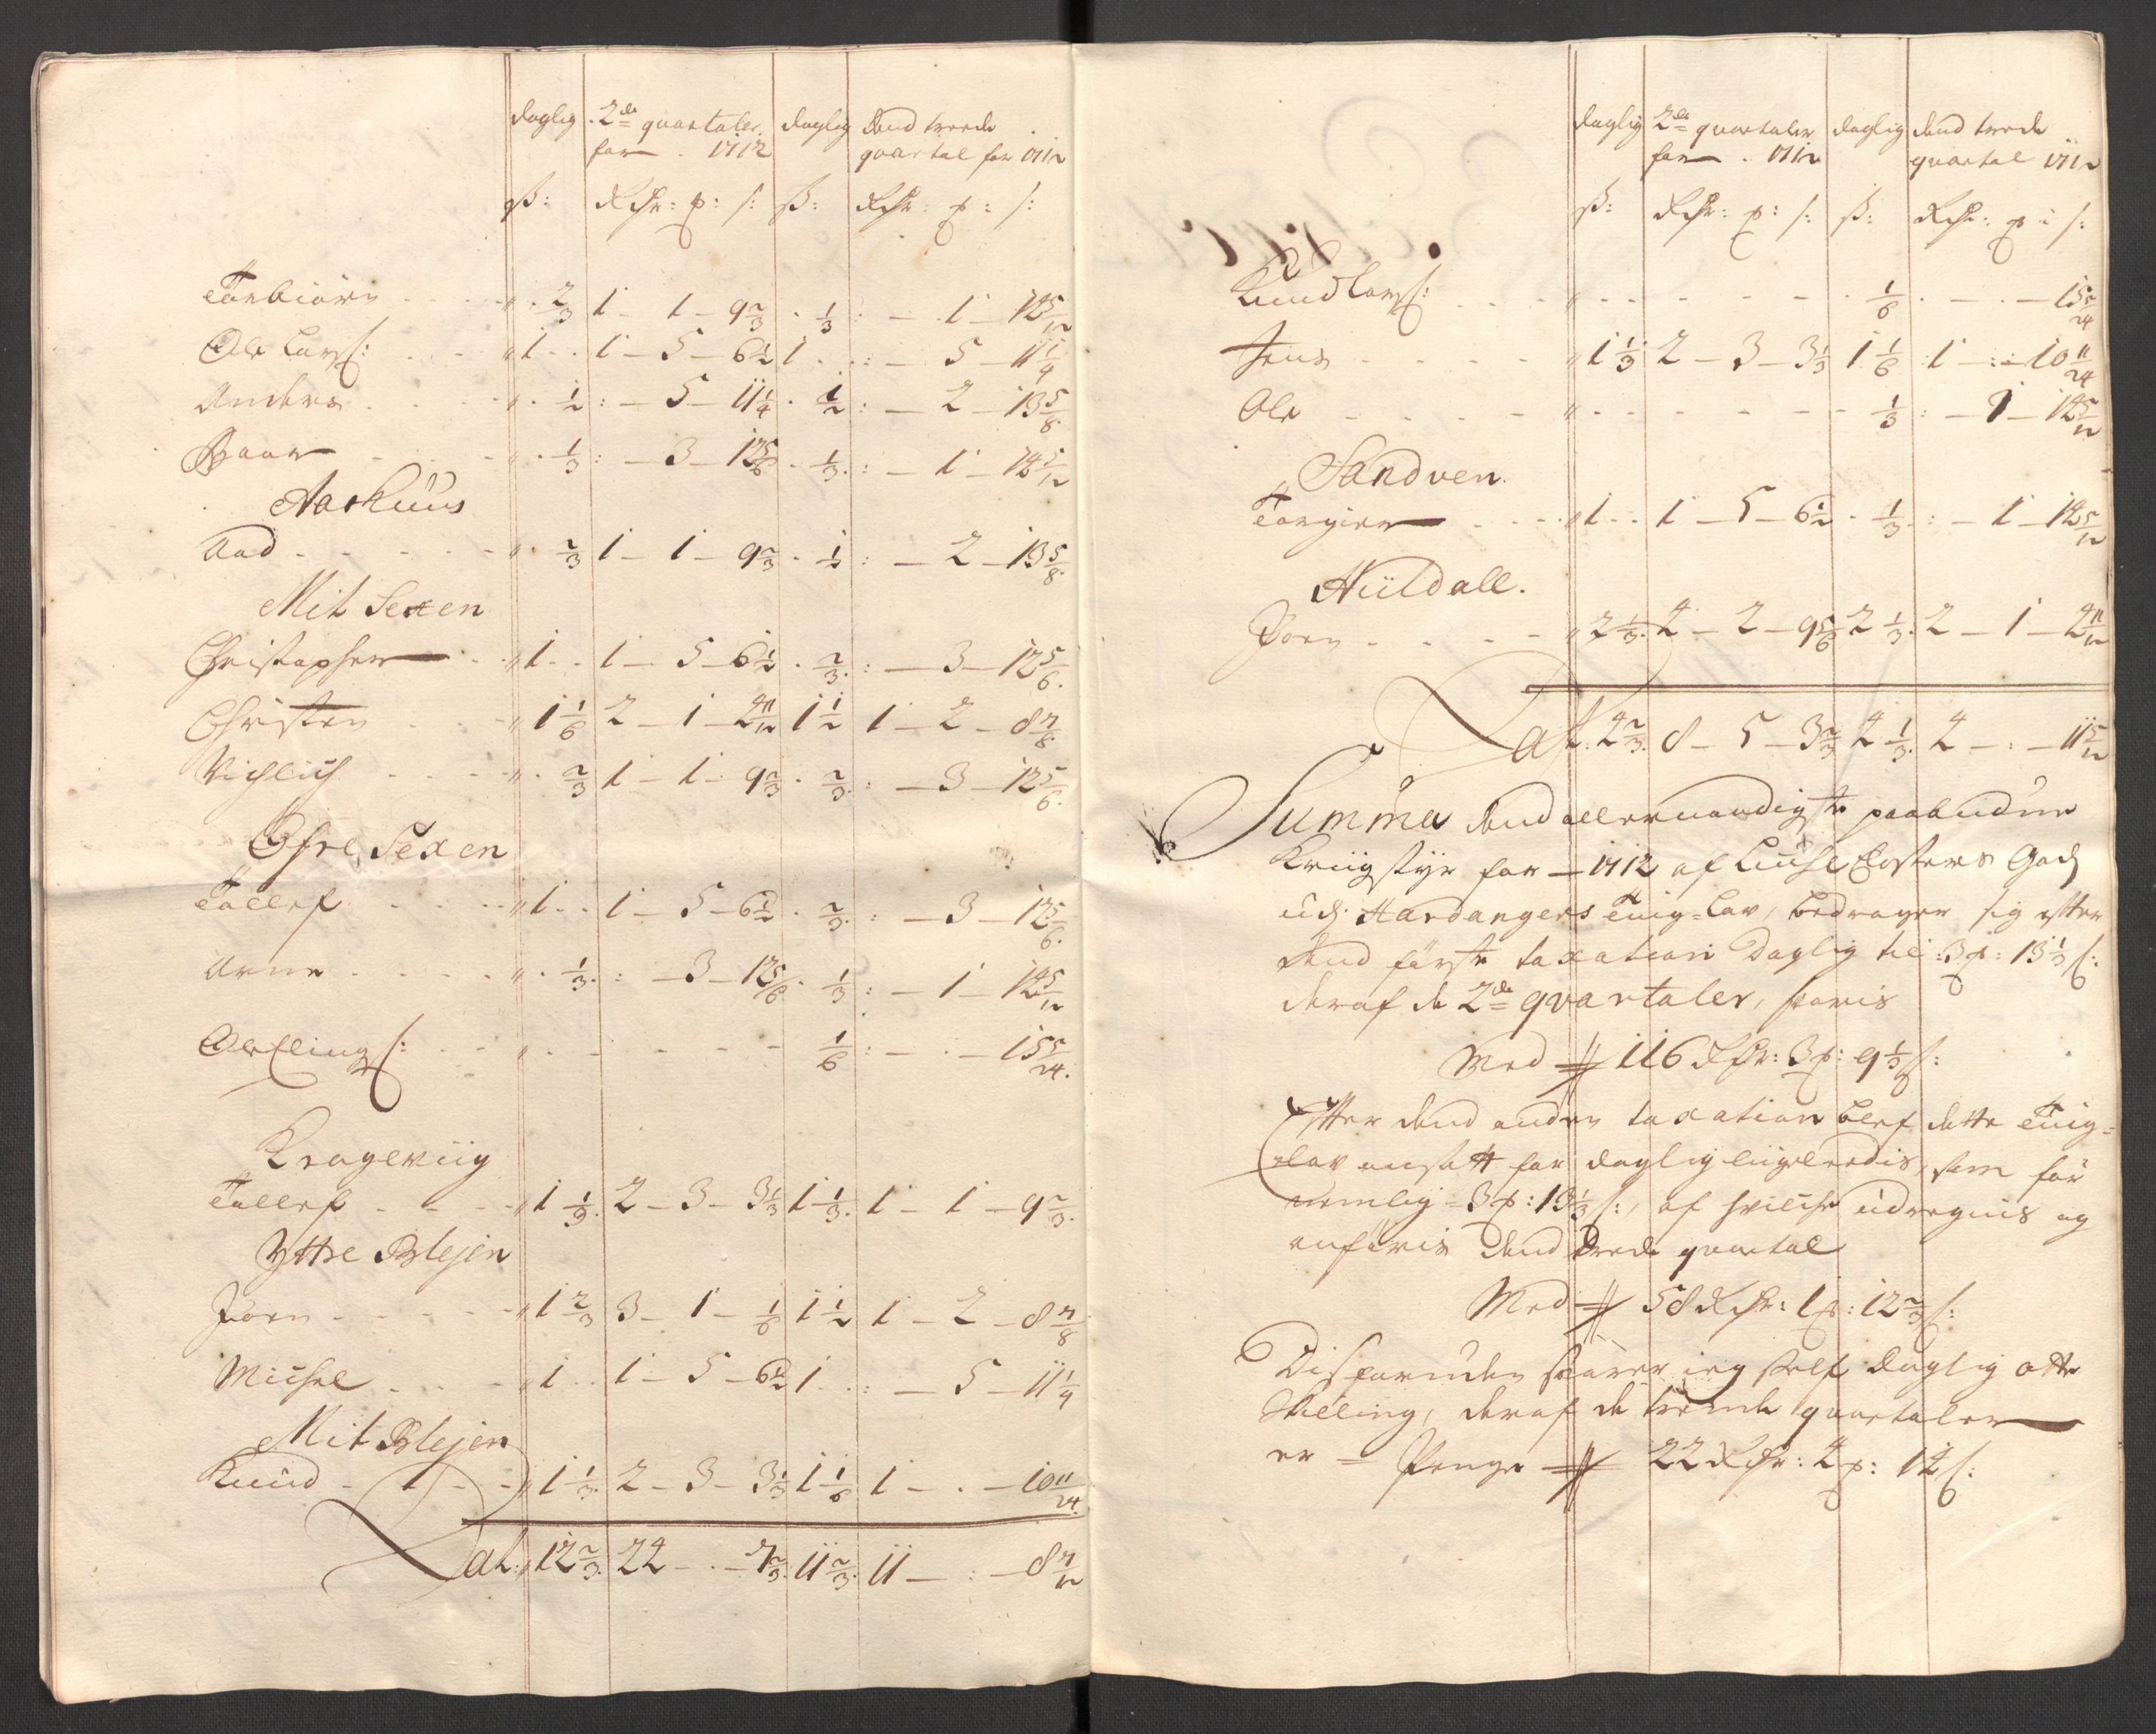 daglig 2de quartaler daglig dend treede
for 1712 quartal for 1712
ß: Rdr: p: s: ß: Rdr: p: s:
Torbiörn " 2/3 1 - 1 - 9 2/3 1/3 : - 1 - 14 5/12
Ole Lars: " 1 1 - 5 - 6 1/2 1 : - 5 - 11 1/4
Anders " 1/2 : - 5 - 11 1/4 1/2 : - 2 - 13 5/8
Baar " 1/3 : - 3 - 12 5/6 1/3 : - 1 - 14 5/12
Aarhuus
Aad " 2/3 1 - 1 - 9 2/3 1/2 : - 2 - 13 5/8
Mit Sexen
Christopher " 1 1 - 5 - 6 1/2 2/3 : - 3 - 12 5/6
Christen " 1 1/6 2 - 1 - 2 11/12 1 1/2 1 - 2 - 8 7/8
Vichlich " 2/3 1 - 1 - 9 2/3 2/3 : - 3 - 12 5/6
Øfre Sexen
Tollef " 1 1 - 5 - 6 1/2 2/3 : - 3 - 12 5/6
Arne " 1/3 : - 3 - 12 5/6 1/3 : - 1 - 14 5/12
" 1/6 : - . - 15 5/24
Krageviig
Tollef " 1 1/3 2 - 3 - 3 1/3 1 1/3 1 - 1 - 9 2/3
Yttre Blejen
Jörn " 1 2/3 3 - 1 - 1/6 1 1/2 1 - 2 - 8 7/8
Michel " 1 1 - 5 - 6 1/2 1 : - 5 - 11 1/4
Mit Blejen
Knud " 1 1/3 2 - 3 - 3 1/3 1 1/6 1 - . - 10 11/24
Lat: 12 2/3 22 - . - 7 2/3 11 2/3 11 - : - 8 7/12
daglig 2de quartaler daglig dend trede
for 1712 quartal 1712
ß: Rdr: p: s: ß: Rdr: p: s:
Knud Lars: " 1/6 . - . - 15 5/24
Jens " 1 1/3 2 - 3 - 3 1/3 1 1/6 1 - : - 10 11/24
Ole " 1/3 : - 1 - 14 5/12
Sandven
Torgier " 1 1 - 5 - 6 1/2 1/3 : - 1 - 14 5/12
Hüldall.
Jörn " 2 1/3 4 - 2 - 9 5/6 2 1/3 2 - 1 - 2 11/12
Lat: 4 2/3 8 - 5 - 3 2/3 4 1/3 4 - : - 11 5/12
Summa dend allernaadigste paabudne
Kriigstyr for 1712 af Liuse Closters Gods
udj Hardangers Tinglav, bedrager sig efter
dend förste taxation Daglig til: 3 p: 13 1/3 s:
deraf de 2de qvartaler, svaris
Med 116 Rdr: 3 p: 9 1/3 s:
Efter dend anden taxation blef dette Ting=
lav ansatt for daglig liigeledis, som för
nemlig = 3 p: 13 1/3 s:, af hvilche udregnis og
anföris Dend trede quartal
Med 58 Rdr: 1 p: 12 2/3 s:
Disforuden svarer ieg self daglig otte
Skilling, deraf de trende quartaler
er = Penge 22 Rdr: 4 p: 14 s: